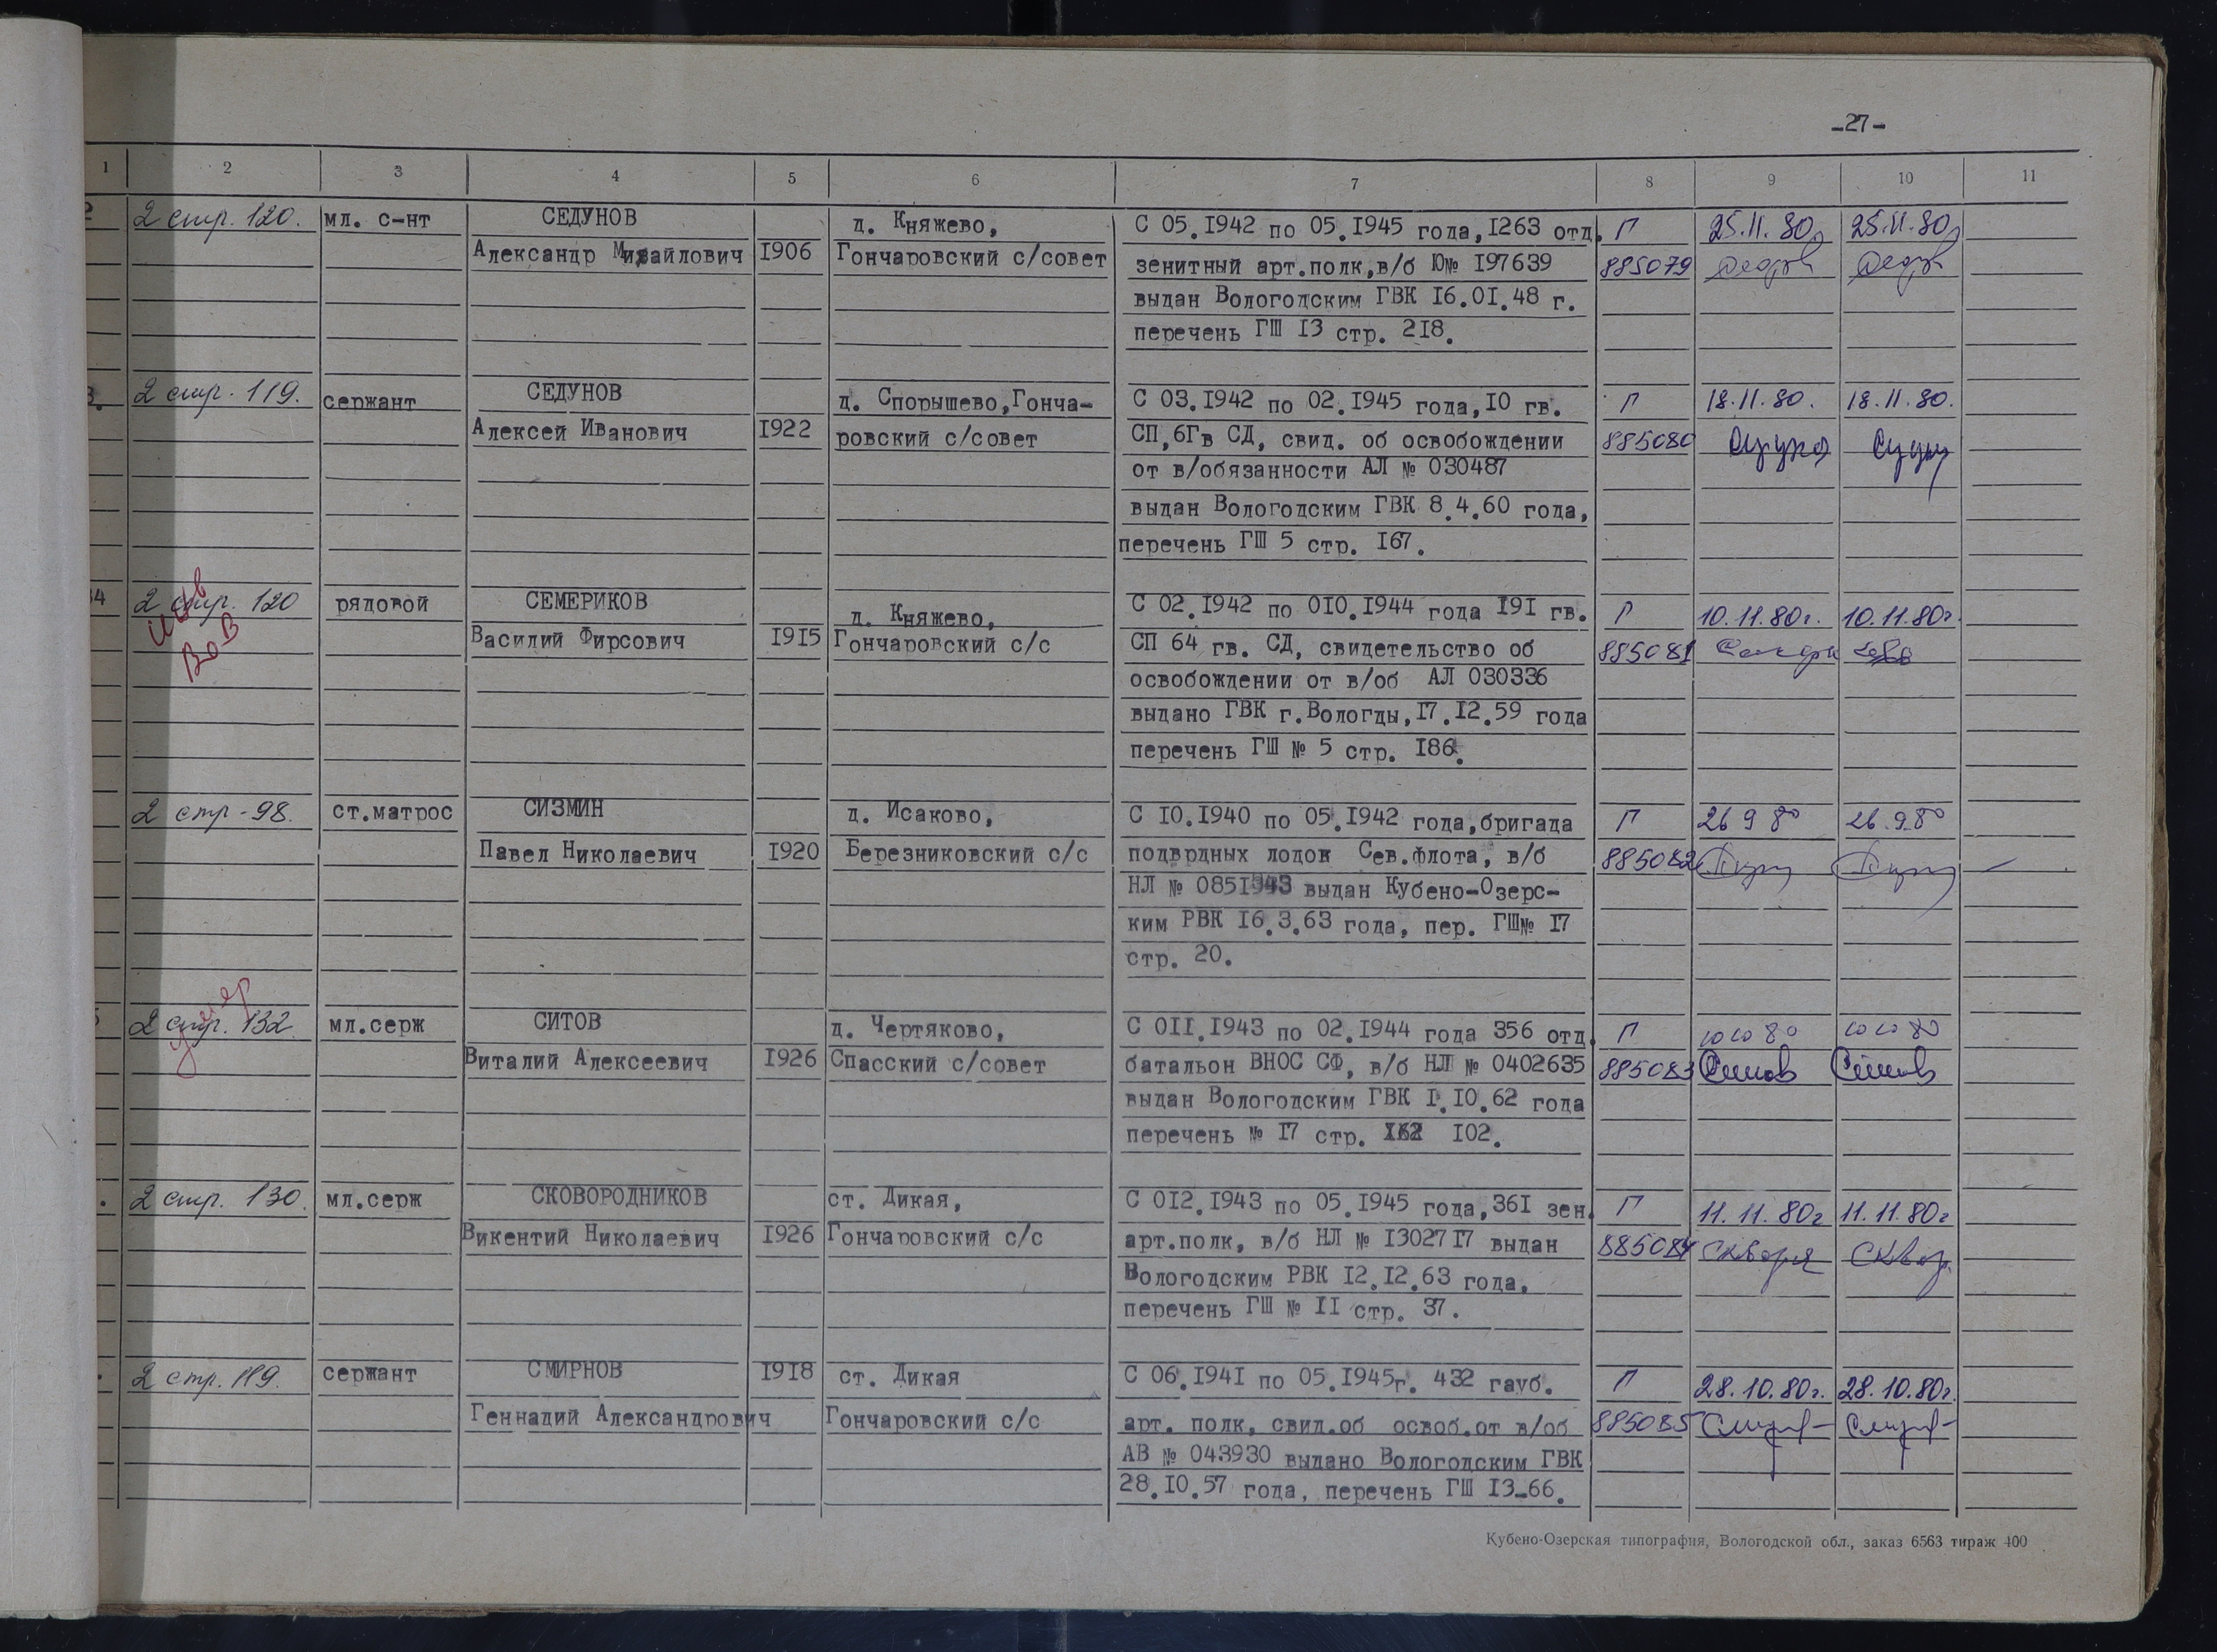 -27-
1 2 3 4 5 6 7 8 9 10 11
2 стр. 120. мл. с-нт СЕДУНОВ д. Княжево, С 05.1942 по 05.1945 года,1263 отд. П 25.11.80 25.11.80
Александр Михайлович 1906 Гончаровский с/совет зенитный арт.полк,в/б Ю№ 197639 885079
выдан Вологодским ГВК 16.01.48 г.
перечень ГШ 13 стр. 218.
3. 2 стр. 119. сержант СЕДУНОВ д. Спорышево,Гонча- С 03.1942 по 02.1945 года,10 гв. П 18.11.80. 18.11.80.
Алексей Иванович 1922 ровский с/совет СП,6Гв СД, свид. об освобождении 885080
от в/обязанности АЛ № 030487
выдан Вологодским ГВК 8.4.60 года,
перечень ГШ 5 стр. 167.
34 2 стр. 120 рядовой СЕМЕРИКОВ д. Княжево, С 02.1942 по 010.1944 года 191 гв. П 10.11.80г. 10.11.80г.
инв
ВоВ
Василий Фирсович 1915 Гончаровский с/с СП 64 гв. СД, свидетельство об 885081
освобождении от в/об АЛ 030336
выдано ГВК г.Вологды,17.12.59 года
перечень ГШ № 5 стр. 186.
2 стр - 98. ст.матрос СИЗМИН д. Исаково, С 10.1940 по 05.1942 года,бригада П 26 9 80 26.9.80
Павел Николаевич 1920 Березниковский с/с подврдных лодок Сев.флота, в/б 885082
НЛ № 0851943 выдан Кубено-Озерс-
ким РВК 16.3.63 года, пер. ГШ№ 17
стр. 20.
умер
2 стр. 132. мл.серж СИТОВ д. Чертяково, С 011.1943 по 02.1944 года 356 отд. П 10 10 80 10 10 80
Виталий Алексеевич 1926 Спасский с/совет батальон ВНОС СФ, в/б НЛ № 0402635 885083 Ситов Ситов
выдан Вологодским ГВК 1.10.62 года
перечень № 17 стр. 102.
2 стр. 130. мл.серж СКОВОРОДНИКОВ ст. Дикая, С 012.1943 по 05.1945 года,361 зен. П 11.11.80г 11.11.80г
Викентий Николаевич 1926 Гончаровский с/с арт.полк, в/б НЛ № 1302717 выдан 885084
Вологодским РВК 12.12.63 года,
перечень ГШ № 11 стр. 37.
2 стр. 119. сержант СМИРНОВ 1918 ст. Дикая С 06.1941 по 05.1945г. 432 гауб. П 28.10.80г. 28.10.80г.
Геннадий Александрович Гончаровский с/с арт. полк, свид.об освоб.от в/об 885085
АВ № 043930 выдано Вологодским ГВК
28.10.57 года, перечень ГШ 13-66.
Кубено-Озерская типография, Вологодской обл., заказ 6563 тираж 400